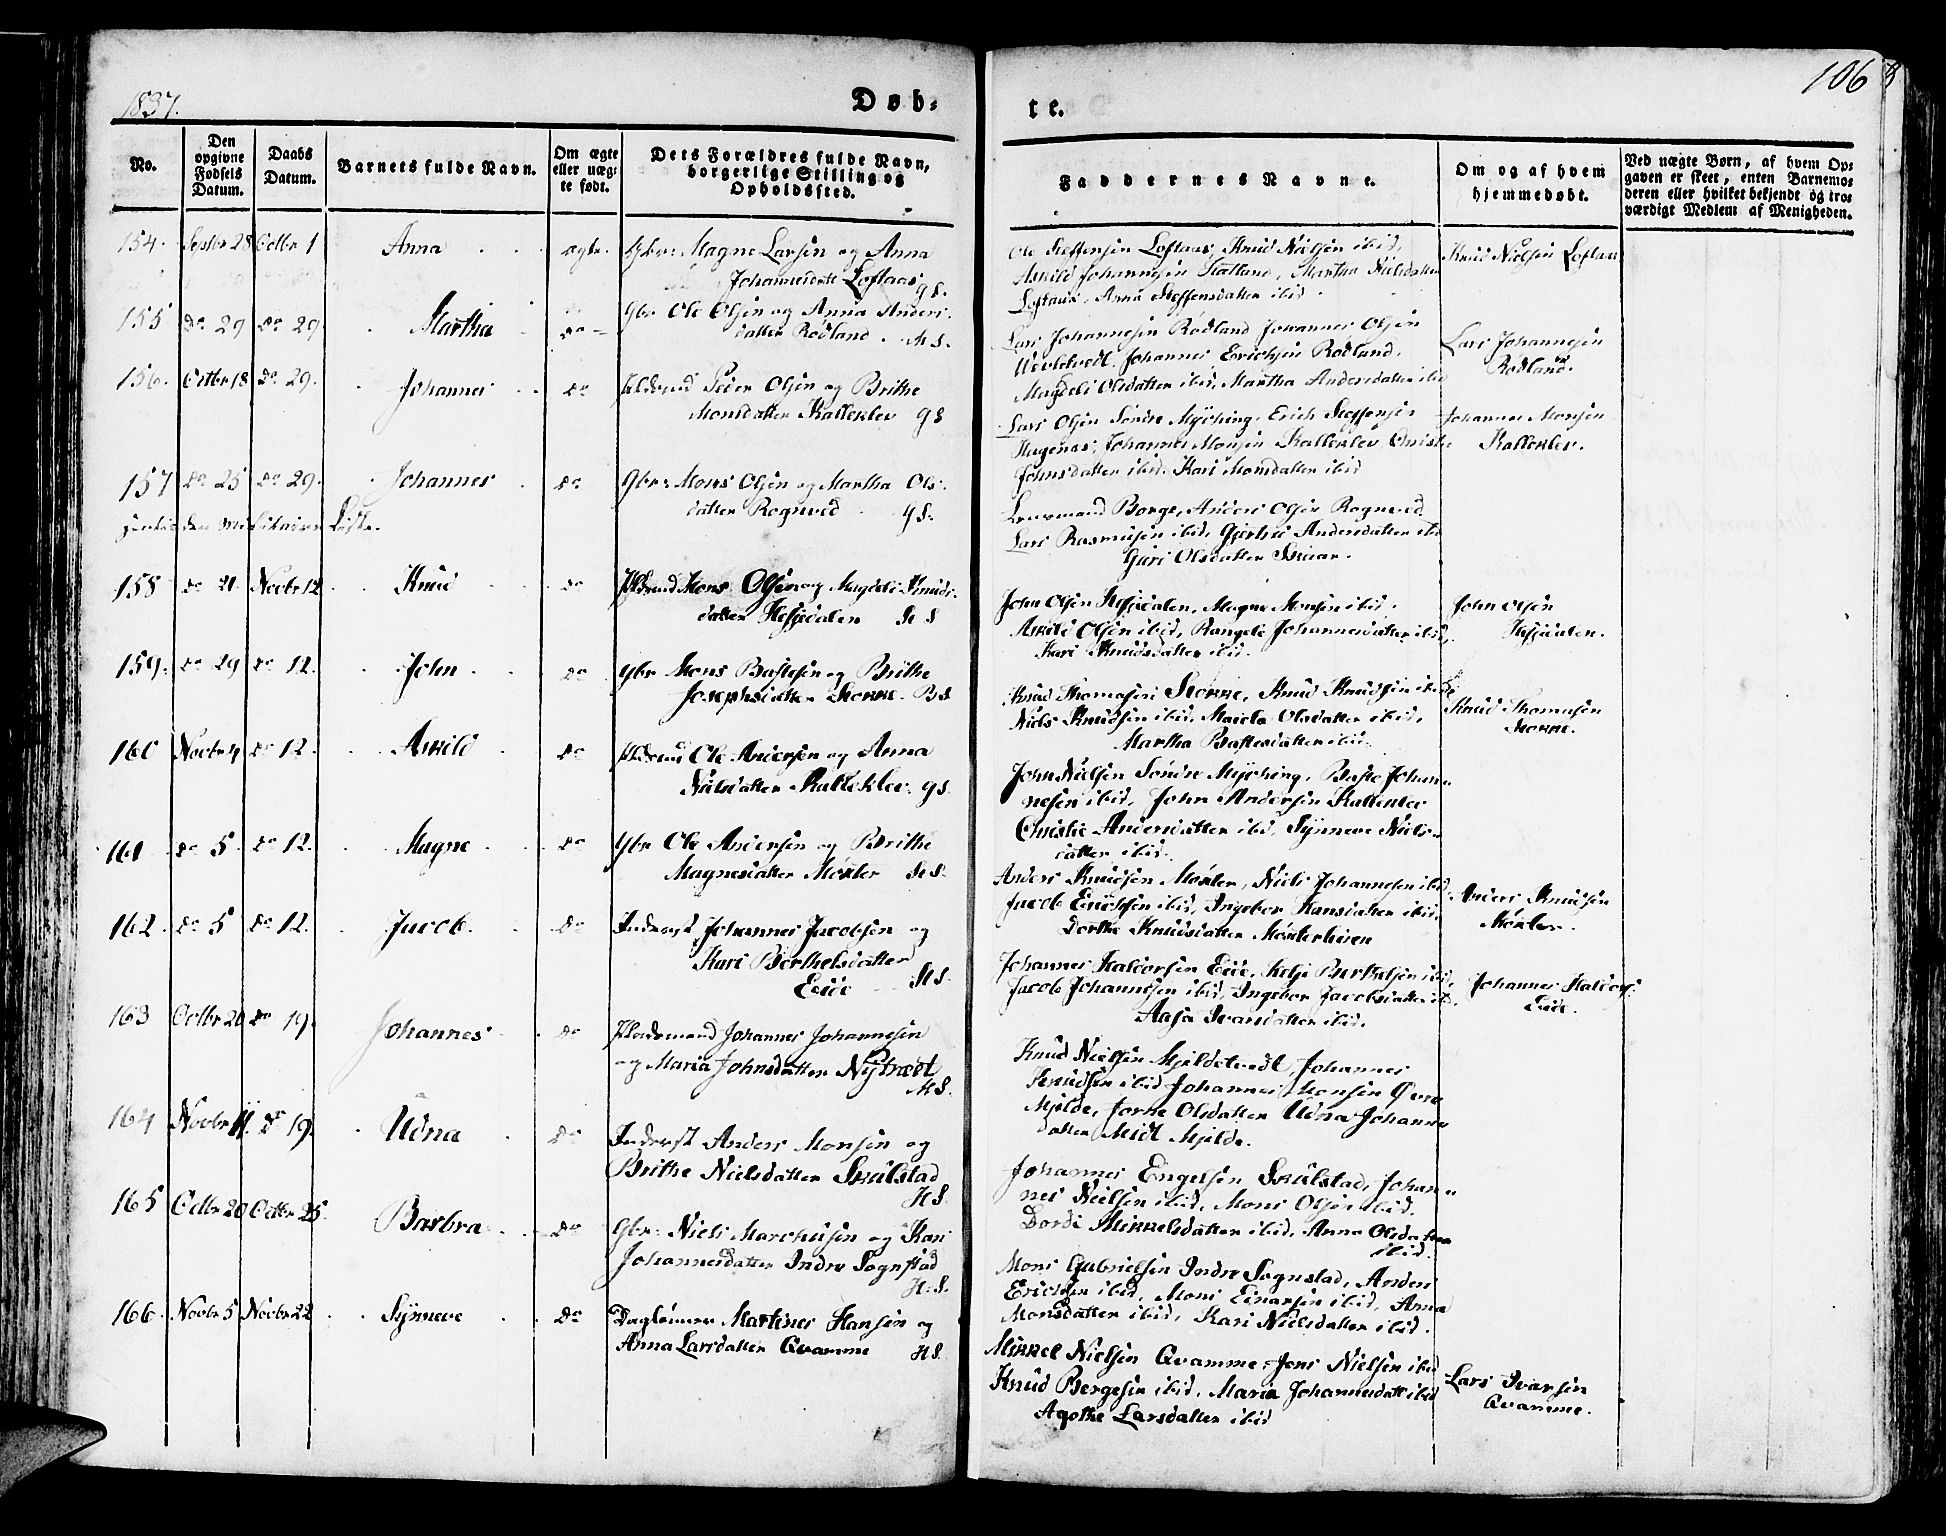 1837.
Døb-
te.
106
No.
Den opgivne Fødsels Datum.
Daabs Datum.
Barnets fulde Navn.
Om ægte eller uægte født.
Dets Forældres fulde Navn, borgerlige Stilling og Opholdssted.
Faddernes Navne.
Om og af hvem hjemmedøbt.
Ved uægte Børn, af hvem Opgaven er skeet, enten Barnemoderen eller hvilket bekjendt og troværdigt Medlem af Menigheden.
154. Septbr 28 Octbr 1 Anna ægte. Gbr: Magne Larsen og Anna
Johannesdatt Loftaas GS.
Ole Steffensen Loftaas, Knud Nielsen ibid,
Askild Johannesen Hatland, Martha Nielsdatter
Loftaas, Anna Steffensdatter ibid
Knud Nielsen Loftaas
155 do 29 do 29 Martha do Gbr Ole Olsen og Anna Anders-
datter Rødland MS.
Lars Johannesen Rødland Johannes Olsen
Johannes Erichsen Rødland.
Magdeli Olsdatter ibid, Martha Andersdatter ibid
Lars Johannesen
Rødland.
156. Octbr 18 do 29. Johannes do Peder Olsen og Brithe
Monsdatter Kalleklev GS
Lars Olsen Søndre Myching, Erich Steffensen
Hagenas, Johannes Monsen Kalleklev, Christie
Johnsdatter ibid. Kari Monsdatter ibid
Johannes Monsen
Kalleklev.
157 do 25 do 29. Johannes do Gbr: Mons Olsen og Martha Ols-
datter Rognved GS.
Liste.
Lensmand Borge, Anders Olsen Rognved
Lars Rasmusen ibid, Gjertrue Andersdatter ibid
Guri Olsdatter Skaar.
158 do 21 Novbr 12 Knud do Mons Olsen og Magdeli Knuds-
datter Hesjedalen HS
John Olsen Hesjedalen, Magne Monsen ibid.
Askild Olsen ibid, Rangele Johannesdatter ibid,
Kari Knudsdatter ibid.
John Olsen
Hesjedalen.
159. do 29 do 12. John do Gbr Mons Bastesen og Brithe
Josephsdatter Storke. BS
Knud Thomasen Storke, Knud Knudsen ibid,
Niels Knudsen ibid, Olsdatter ibid,
Martha Bastesdatter ibid.
Knud Thomasen
Storke.
160 Novbr 4 do 12. Askild do Ole Andersen og Anna
Nielsdatter Kalleklev. GS.
John Nielsen Søndre Myching, Baste Johan-
nesen ibid, John Andersen Kalleklev
Christie Andersdatter ibid, Synneve Niels-
datter ibid.
161 do 5. do 12. Magne do Gbr Ole Andersen og Brithe
Magnesdatter Møster HS.
Anders Knudsen Møster, Niels Johannesen ibid,
Jacob Erichsen ibid, Ingebor Hansdatter ibid,
Dorthe Knudsdatter
Anders Knudsen
Møster.
162. do 5 do 12. Jacob. do Inderst Johannes Jacobsen og
Kari Berthelsdatter
Eide HS.
Johannes Haldorsen Eide, Helje Berthelsen ibid,
Jacob Johannesen ibid, Ingebor Jacobsdatter ibid.
Aasa Ivarsdatter ibid.
Johannes Haldors:
Eide.
163 Octbr 20 do 19. Johannes do Johannes Johannesen
og Maria Johnsdatter Nytvedt
MS.
Knud Nielsen Mjeldetvedt, Johannes
Knudsen ibid Johannes Monsen Øvre
Mjelde, Jorne Olsdatter Udna Johannes
datter Midt Mjelde.
164 Novbr 11. do 19. Udna do Inderst Anders Monsen og
Brithe Nielsdatter Skulstad
HS.
Johannes Engelsen Skulstad, Johan-
nes Nielsen ibid, Mons Olsen ibid.
Dordi Mikkelsdatter ibid, Anna Olsdatter
ibid.
165 Octbr 20 Octbr 25. Barbra do Gbr: Niels Marchusen og Kari
Johannesdatter Indre Sognstad
H:S.
Mons Gabrielsen Indre Sognstad, Anders
Erichsen ibid, Mons Einarsen ibid, Anna
Monsdatter ibid, Kari Nielsdatter ibid.
166. Novbr 5 Novbr 22 Synneve do Daglønner Martines Hansen og
Anna Larsdatter Qvamme HS.
Mikkel Nielsen Qvamme, Jens Nielsen ibid
Knud Bergesen ibid, Maria Johannesdatt ibid
Agothe Larsdatter ibid
Lars Ivarsen
Qvamme.